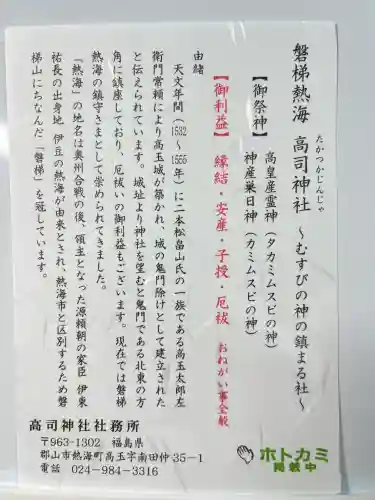 磐梯熱海 高司神社 ～むすびの神の鎮まる社～
たかつかじんじゃ
【御祭神】
高皇産霊神(タカミムスビの神)
神産巣日神(カミムスビの神)
【御利益】 縁結・安産・子授・厄祓 おねがい事全般
由緒
天文年間(1532～1555年)に二本松畠山氏の一族である高玉太郎左
衛門常頼により高玉城が築かれ、城の鬼門除けとして建立された
と伝えられています。城址より神社を望むと鬼門である北東の方
角に鎮座しており、厄祓いの御利益もございます。現在では磐梯
熱海の鎮守さまとして崇められてきました。
『熱海』の地名は奥州合戦の後、領主となった源頼朝の家臣 伊東
祐長の出身地 伊豆の熱海が由来とされ、熱海市と区別するため磐
梯山にちなんだ「磐梯」を冠しています。
高司神社社務所
〒963-1302 福島県
郡山市熱海町高玉字南田仲35-1
電話 024-984-3316
ホトカミ
掲載中